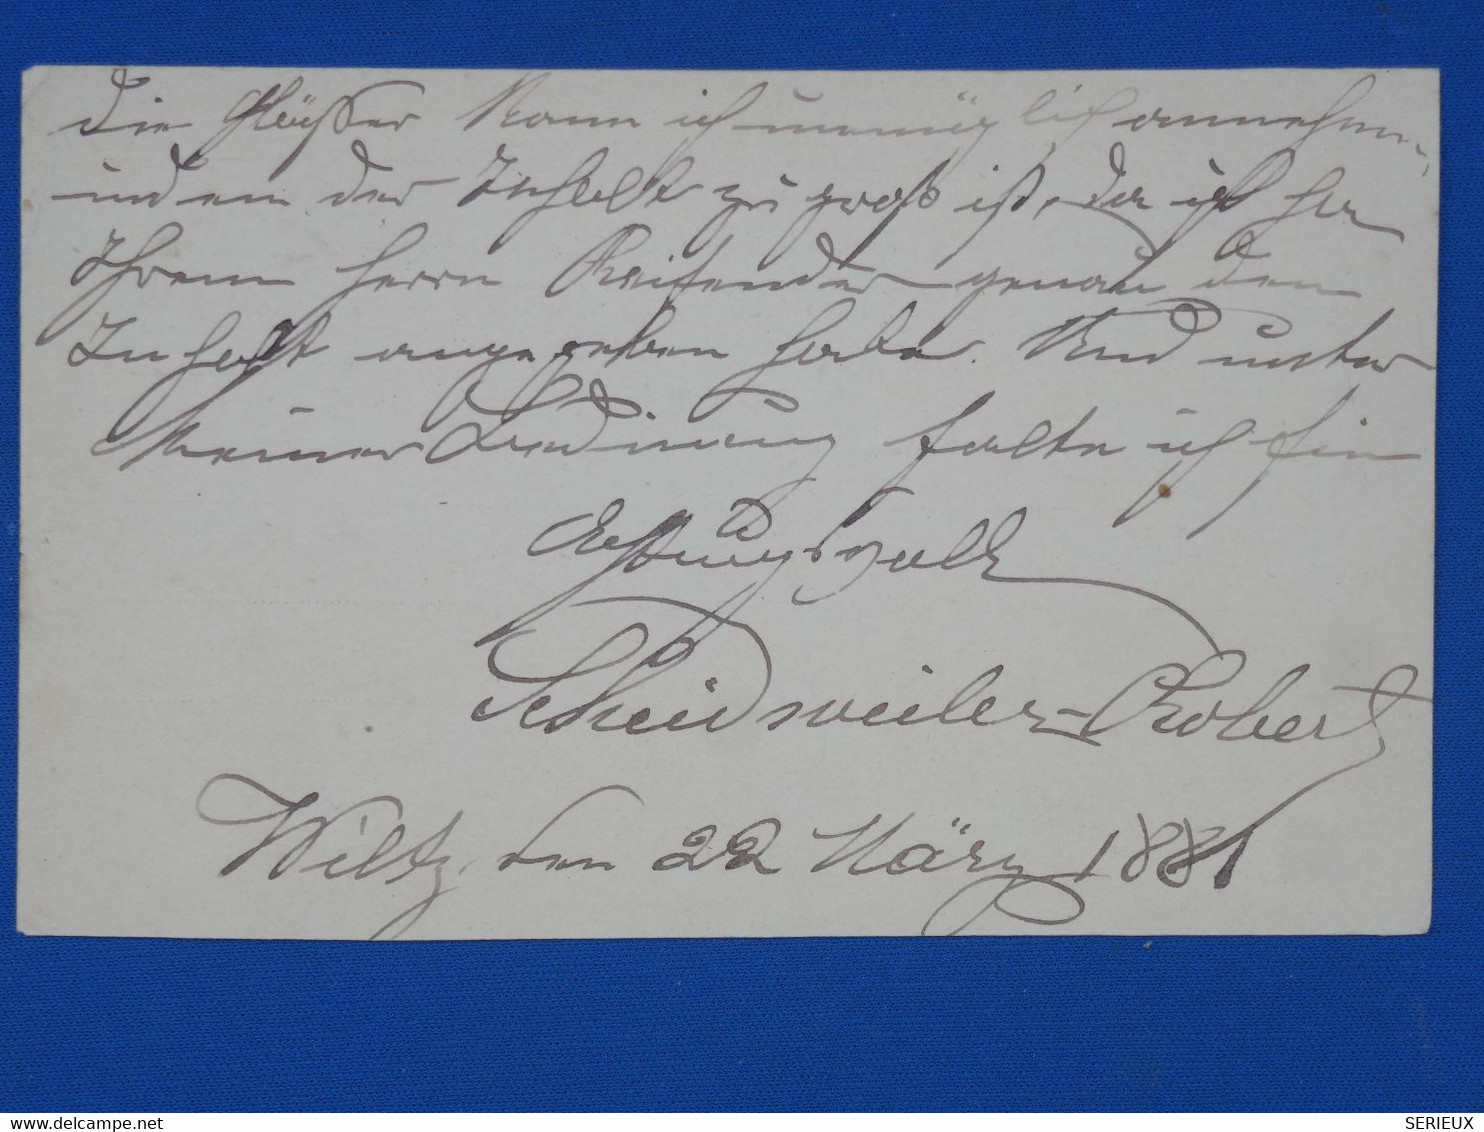 die Gläser kann ich unmöglich annehmen,
indem der Inhalt zu groß ist, da ich ja
Ihrem Herrn Reisender genau den
Inhalt angegeben habe. Und unter
keiner Bedinung halte ich sie
Achtungsvoll
Scheidweiler-Robert
Wiltz, den 22 März 1881
SERIEUX